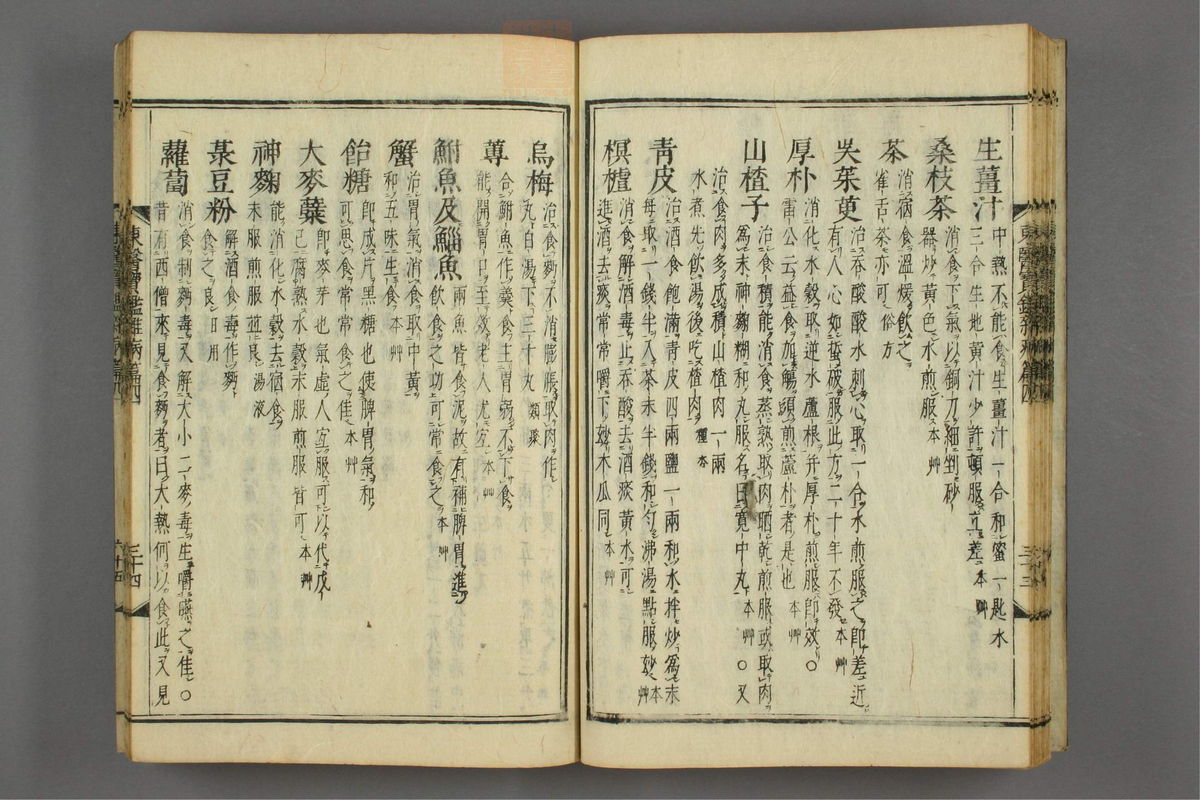 生薑汁 中熱不能食生薑汁一合和蜜一匙水
三合生地黃汁少許頓服立差 本艸
桑枝茶 消食下氣以銅刀細剉砂
器炒黃色水煎服 本艸
茶 消宿食溫煖飲之
雀舌茶亦可 俗方
吳茱萸 治吞酸酸水刺心取一合水煎服之卽差近
有人心如蜇破服此方二十年不發 本艸
厚朴 消化水穀取逆水蘆根并厚朴煎服卽效〇
雷公云益食加觴須煎蘆朴者是也 本艸
山楂子 治食積能消食蒸熟取肉晒乾煎服或取肉
爲末神麴糊和丸服名曰寬中丸 本艸 〇又
治食肉多成積山楂肉一兩
水煮先飲湯後吃楂肉 種杏
靑皮 治酒食飽滿靑皮四兩鹽一兩和水拌炒爲末
每取一錢半入茶末半錢和勻沸湯點服妙 本艸
榠樝 消食解酒毒止吞酸去酒痰黃水可
進酒去痰常嚼下妙木瓜同 本艸
烏梅 治食麪不消膨脹取肉作
丸白湯下三十丸 類聚
蓴 合鮒魚作羹食主胃弱不下食
能開胃口至效老人尤宜 本艸
鮒魚及鯔魚 兩魚皆食泥故有補脾胃進
飮食之功可常食之 本艸
蟹 治胃氣消食取中黃
和五味生食 本艸
飴糖 卽成片黑糖也使脾胃氣和
可思食常常食之佳 本艸
大麥蘖 卽麥芽也氣虛人宜服可以代戊
己腐熟水穀末服煎服皆可 本艸
神麴 能消化水穀去宿食
末服煎服並良 湯液
菉豆粉 解酒食毒作麪
食之良 日用
蘿蔔 消食制麪毒又解大小二麥毒生嚼嚥之佳〇
昔有西僧來見食麪者曰大熱何以食此又見